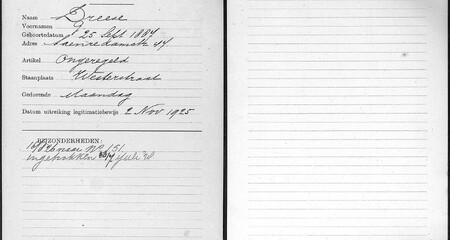 Naam Dreese
Voornamen
Geboortedatum 25 Sept 1887
Adres Saenredamstr 44
Artikel Ongeregeld
Staanplaats Westerstraat
Gedurende Maandag
Datum uitreiking legitimatiebewijs 2 Nov 1925
BIJZONDERHEDEN:
naar No 151
ingetrokken Juli